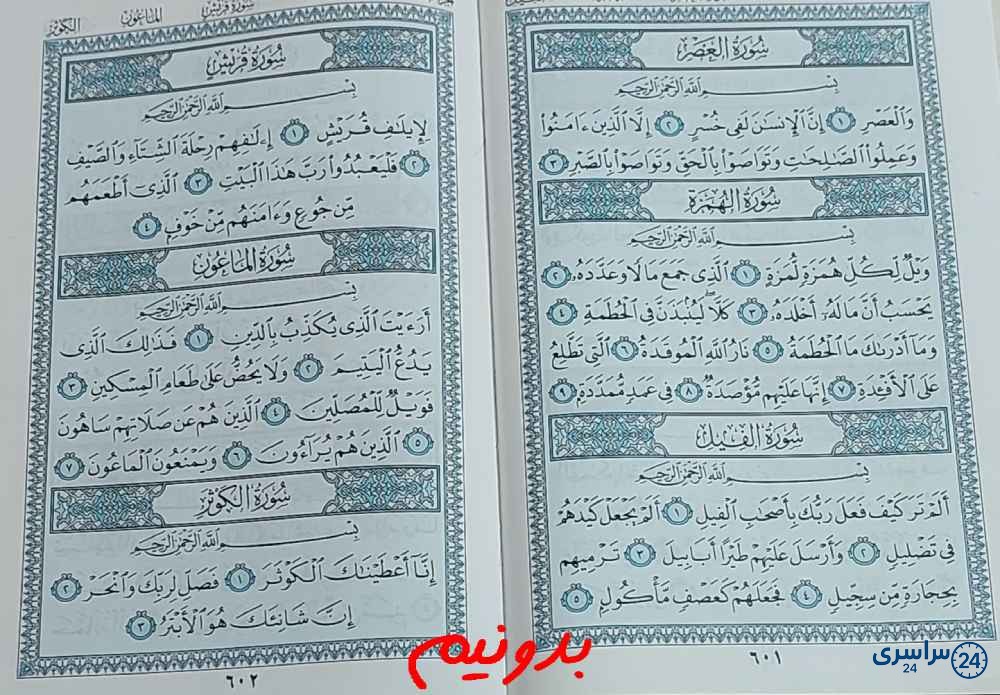 سُورَةُ العَصْرِ
بِسْمِ اللَّهِ الرَّحْمَٰنِ الرَّحِيمِ
وَالْعَصْرِ ١ إِنَّ الْإِنسَانَ لَفِي خُسْرٍ ٢ إِلَّا الَّذِينَ ءَامَنُوا
وَعَمِلُوا الصَّالِحَاتِ وَتَوَاصَوْا بِالْحَقِّ وَتَوَاصَوْا بِالصَّبْرِ ٣
سُورَةُ الهُمَزَةِ
بِسْمِ اللَّهِ الرَّحْمَٰنِ الرَّحِيمِ
وَيْلٌ لِّكُلِّ هُمَزَةٍ لُّمَزَةٍ ١ الَّذِي جَمَعَ مَالًا وَعَدَّدَهُ ٢
يَحْسَبُ أَنَّ مَالَهُ أَخْلَدَهُ ٣ كَلَّا لَيُنبَذَنَّ فِي الْحُطَمَةِ ٤
وَمَا أَدْرَاكَ مَا الْحُطَمَةُ ٥ نَارُ اللَّهِ الْمُوقَدَةُ ٦ الَّتِي تَطَّلِعُ
عَلَى الْأَفْئِدَةِ ٧ إِنَّهَا عَلَيْهِم مُّؤْصَدَةٌ ٨ فِي عَمَدٍ مُّمَدَّدَةٍ ٩
سُورَةُ الفِيلِ
بِسْمِ اللَّهِ الرَّحْمَٰنِ الرَّحِيمِ
أَلَمْ تَرَ كَيْفَ فَعَلَ رَبُّكَ بِأَصْحَابِ الْفِيلِ ١ أَلَمْ يَجْعَلْ كَيْدَهُمْ
فِي تَضْلِيلٍ ٢ وَأَرْسَلَ عَلَيْهِمْ طَيْرًا أَبَابِيلَ ٣ تَرْمِيهِم
بِحِجَارَةٍ مِّن سِجِّيلٍ ٤ فَجَعَلَهُمْ كَعَصْفٍ مَّأْكُولٍ ٥
٦٠١
سُورَةُ قُرَيْشٍ
المَاعُون
الكَوْثَر
سُورَةُ قُرَيْشٍ
بِسْمِ اللَّهِ الرَّحْمَٰنِ الرَّحِيمِ
لِإِيلَافِ قُرَيْشٍ ١ إِۦلَافِهِمْ رِحْلَةَ الشِّتَاءِ وَالصَّيْفِ
٢ فَلْيَعْبُدُوا رَبَّ هَٰذَا الْبَيْتِ ٣ الَّذِي أَطْعَمَهُم
مِّن جُوعٍ وَءَامَنَهُم مِّنْ خَوْفٍ ٤
سُورَةُ المَاعُونِ
بِسْمِ اللَّهِ الرَّحْمَٰنِ الرَّحِيمِ
أَرَءَيْتَ الَّذِي يُكَذِّبُ بِالدِّينِ ١ فَذَٰلِكَ الَّذِي
يَدُعُّ الْيَتِيمَ ٢ وَلَا يَحُضُّ عَلَى طَعَامِ الْمِسْكِينِ ٣
فَوَيْلٌ لِّلْمُصَلِّينَ ٤ الَّذِينَ هُمْ عَن صَلَاتِهِمْ سَاهُونَ
٥ الَّذِينَ هُمْ يُرَاءُونَ ٦ وَيَمْنَعُونَ الْمَاعُونَ ٧
سُورَةُ الكَوْثَرِ
بِسْمِ اللَّهِ الرَّحْمَٰنِ الرَّحِيمِ
إِنَّا أَعْطَيْنَاكَ الْكَوْثَرَ ١ فَصَلِّ لِرَبِّكَ وَانْحَرْ ٢
إِنَّ شَانِئَكَ هُوَ الْأَبْتَرُ ٣
٦٠٢
بدونیم
سراسری 24
24